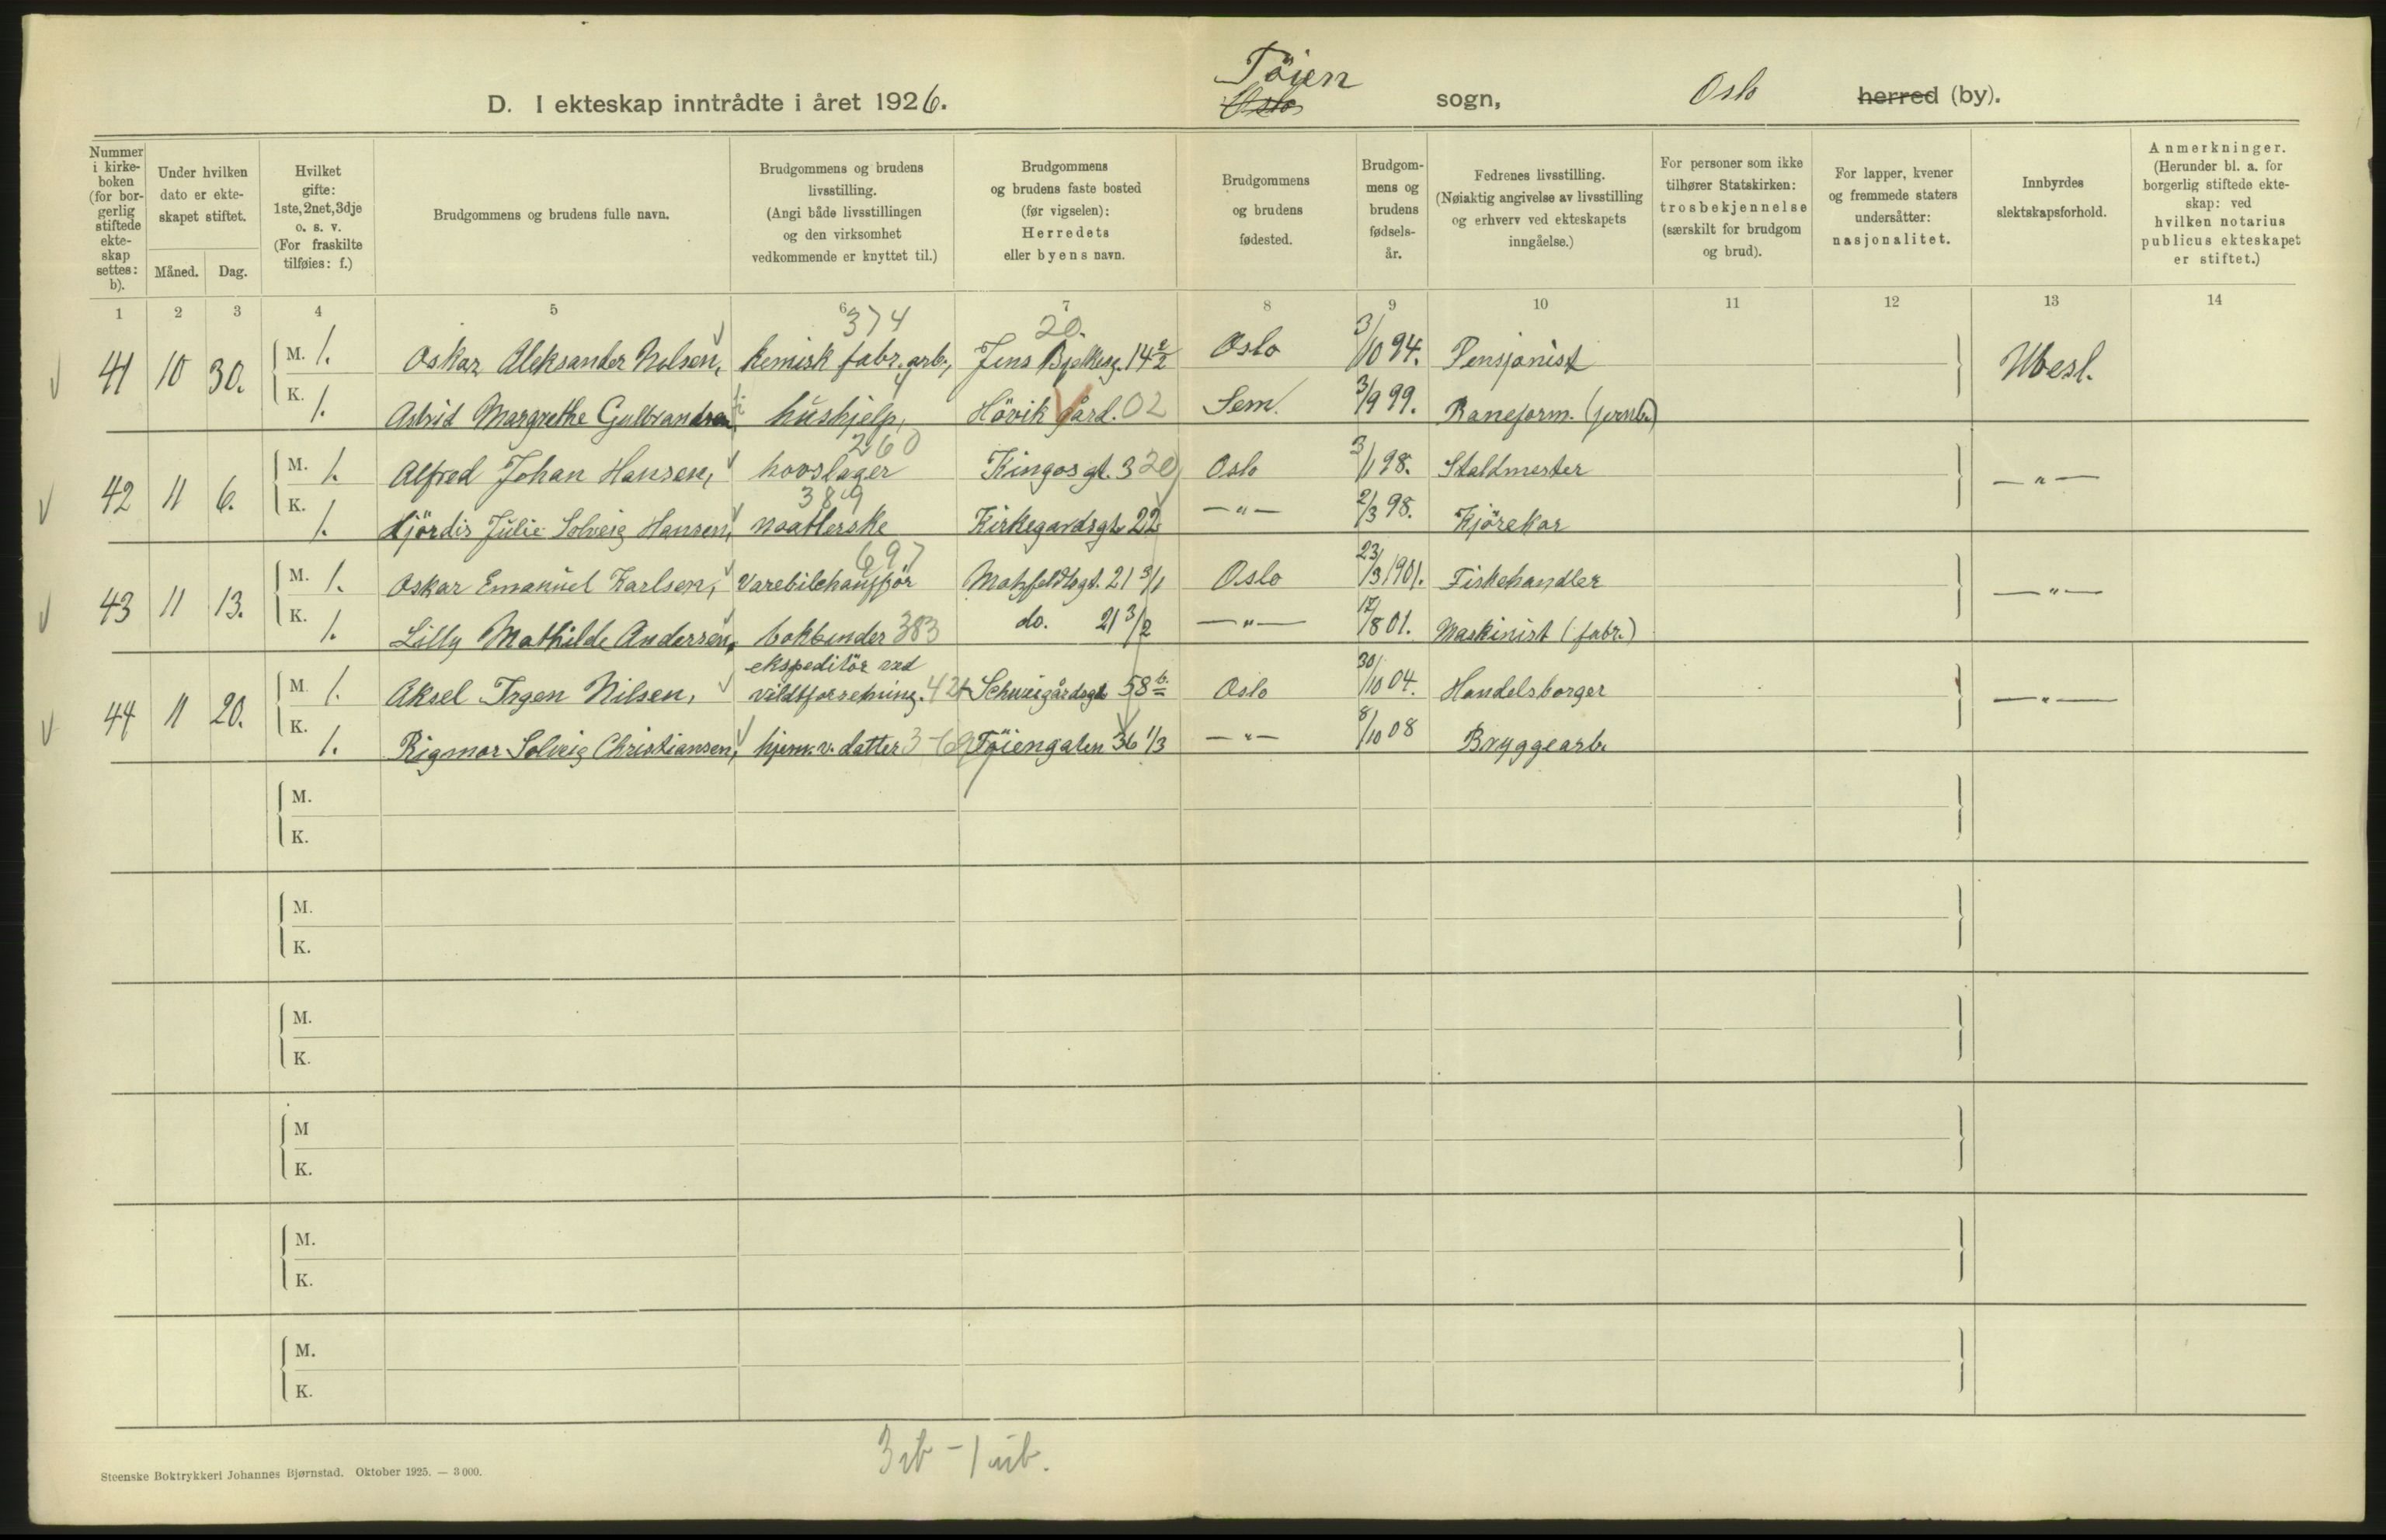 D. I ekteskap inntrådte i året 1926.
Töien
Oslo sogn, Oslo herred (by).
Nummer i kirkeboken (for borgerlig stiftede ekteskap settes: b).
Under hvilken dato er ekteskapet stiftet.
Måned. Dag.
Hvilket gifte: 1ste, 2net, 3dje o. s. v. (For fraskilte tilføies: f.)
Brudgommens og brudens fulle navn.
Brudgommens og brudens livsstilling. (Angi både livsstillingen og den virksomhet vedkommende er knyttet til.)
Brudgommens og brudens faste bosted (før vigselen): Herredets eller byens navn.
Brudgommens og brudens fødested.
Brudgommens og brudens fødselsår.
Fedrenes livsstilling. (Nøiaktig angivelse av livsstilling og erhverv ved ekteskapets inngåelse.)
For personer som ikke tilhører Statskirken: trosbekjennelse (særskilt for brudgom og brud).
For lapper, kvener og fremmede staters undersåtter: nasjonalitet.
Innbyrdes slektskapsforhold.
Anmerkninger. (Herunder bl. a. for borgerlig stiftede ekteskap: ved hvilken notarius publicus ekteskapet er stiftet.)
1 2 3 4 5 6 7 8 9 10 11 12 13 14
374 20.
41 10 30. M. 1. Oskar Aleksander Nilsen, kemisk fabr. arb., Jens Bjelkesg. 14 2/2 Oslo 3/10 94. Pensjonist Ubesl.
K. 1. Astrid Margrethe Gulbrandsen, hushjelp, Hövik gård. 02 Sem. 3/9 99. Baneform. (jernb.)
260
42 11 6. M. 1. Alfred Johan Hansen, hovslager Kingos gt. 3 20 Oslo 3/1 98. Staldmester — " —
389
K. 1. Hjördis Julie Solveig Hansen, naatlerske Kirkegardsgt. 22 — " — 2/3 98. Kjörekar
697
43 11 13. M. 1. Oskar Emanuel Karlsen, Varebilchauffør Motzfeldtsgt. 21 3/1 Oslo 23/3 1901. Fiskehandler — " —
K. 1. Lilly Mathilde Andersen, bokbinder 383 do. 21 3/2 — " — 17/8 01. Maskinist (fabr.)
ekspeditör ved
44 11 20. M. 1. Aksel Irgen Nilsen, vildtforretning. 424 Schweigårdsgt 58 b. Oslo 30/10 04. Handelsborger — " —
K. 1. Rigmor Solveig Christiansen, hjemv. datter Töiengaten 36 1/3 — " — 8/10 08 Bryggearb.
M.
K.
M.
K.
M.
K.
M
K.
M.
K.
M.
K.
3 ib - 1 uib.
Steenske Boktrykkeri Johannes Bjørnstad. Oktober 1925. — 3000.